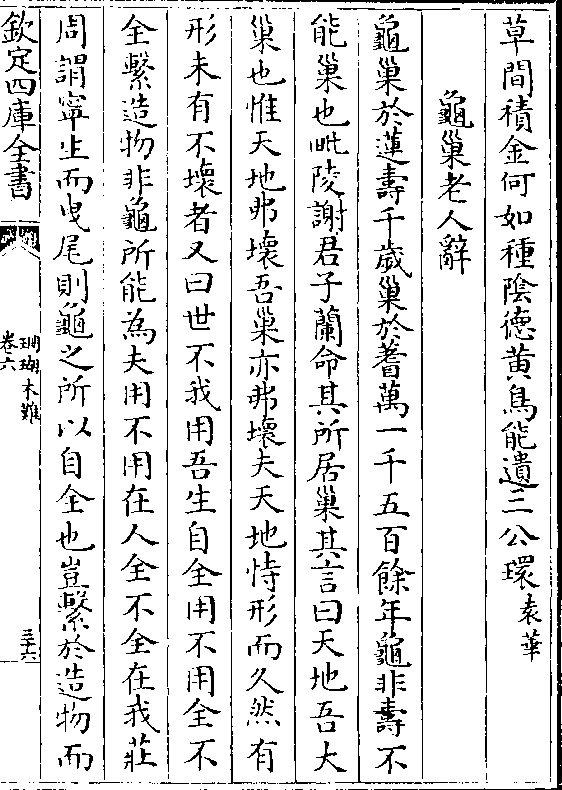 草間積金何如種陰德黄鳥能遺三公環袁華
龜巢老人辭
龜巢於蓮壽千歲巢於蓍萬一千五百餘年龜非壽不
能巢也毗陵謝君子蘭命其所居巢其言曰天地吾大
巢也惟天地弗壞吾巢亦弗壞夫天地恃形而久然有
形未有不壞者又曰世不我用吾生自全用不用全不
全繫造物非龜所能為夫用不用在人全不全在我莊
周謂寧生而曳尾則龜之所以自全也豈繫於造物而
欽定四庫全書
珊瑚木難
卷六
三十六